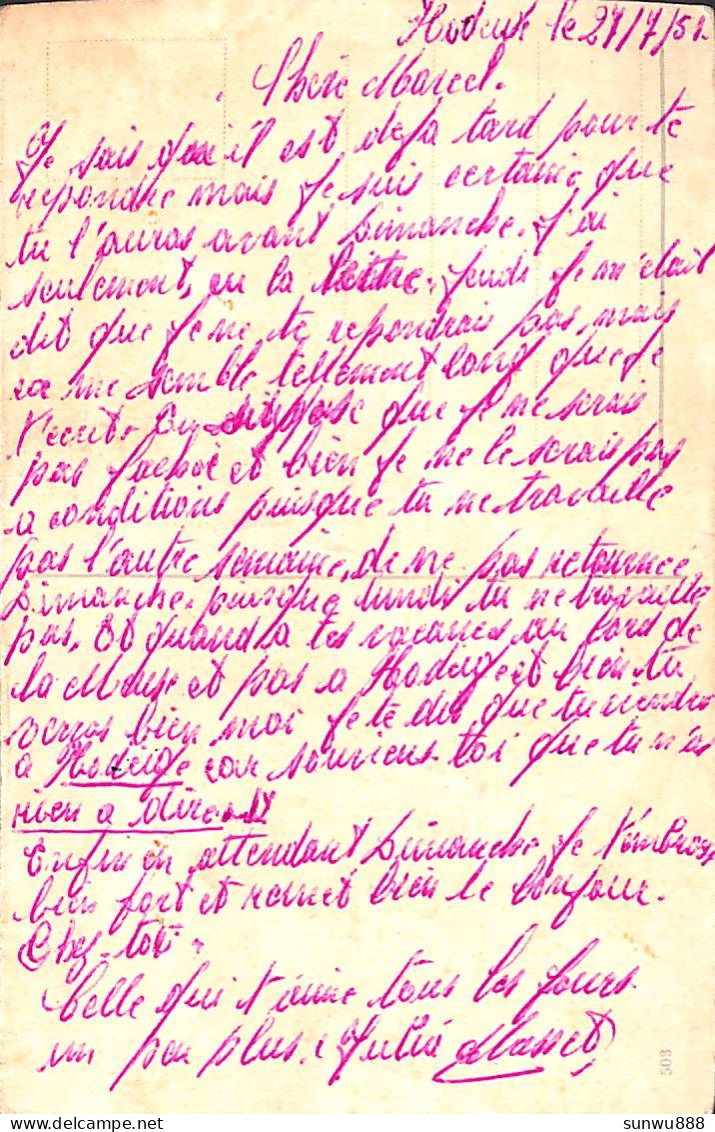 le 27/7/51.
Chère Marcel.
Je sais qu'il est deja tard pour te
repondre mais je suis certaine que
tu l'auras avant Dimanche. J'ai
seulement, eu la lettre. Jeudi je m'était
dit que je ne te repondrais pas mais
sa me semble tellement long que je
t'ecrit. Tu suppose que je ne serais
pas fachée et bien je ne le serais pas
a conditions puisque tu ne travaille
pas l'autre semaine, de ne pas retournée
Dimanche. puisque lundi tu ne travaille
pas. Et quand a tes vacances au bord de
la Meuse et pas a Hodeige et bien tu
verras bien moi je te dis que tu viendra
a Hodeige car souviens-toi que tu n'as
rien a dire. !!
Enfin en attendant Dimanche je t'embrasse
bien fort et remet bien le bonjour.
Chez-toi.
Celle qui t'aime tous les jours
un peu plus. Julia Masset
508
sunwu888